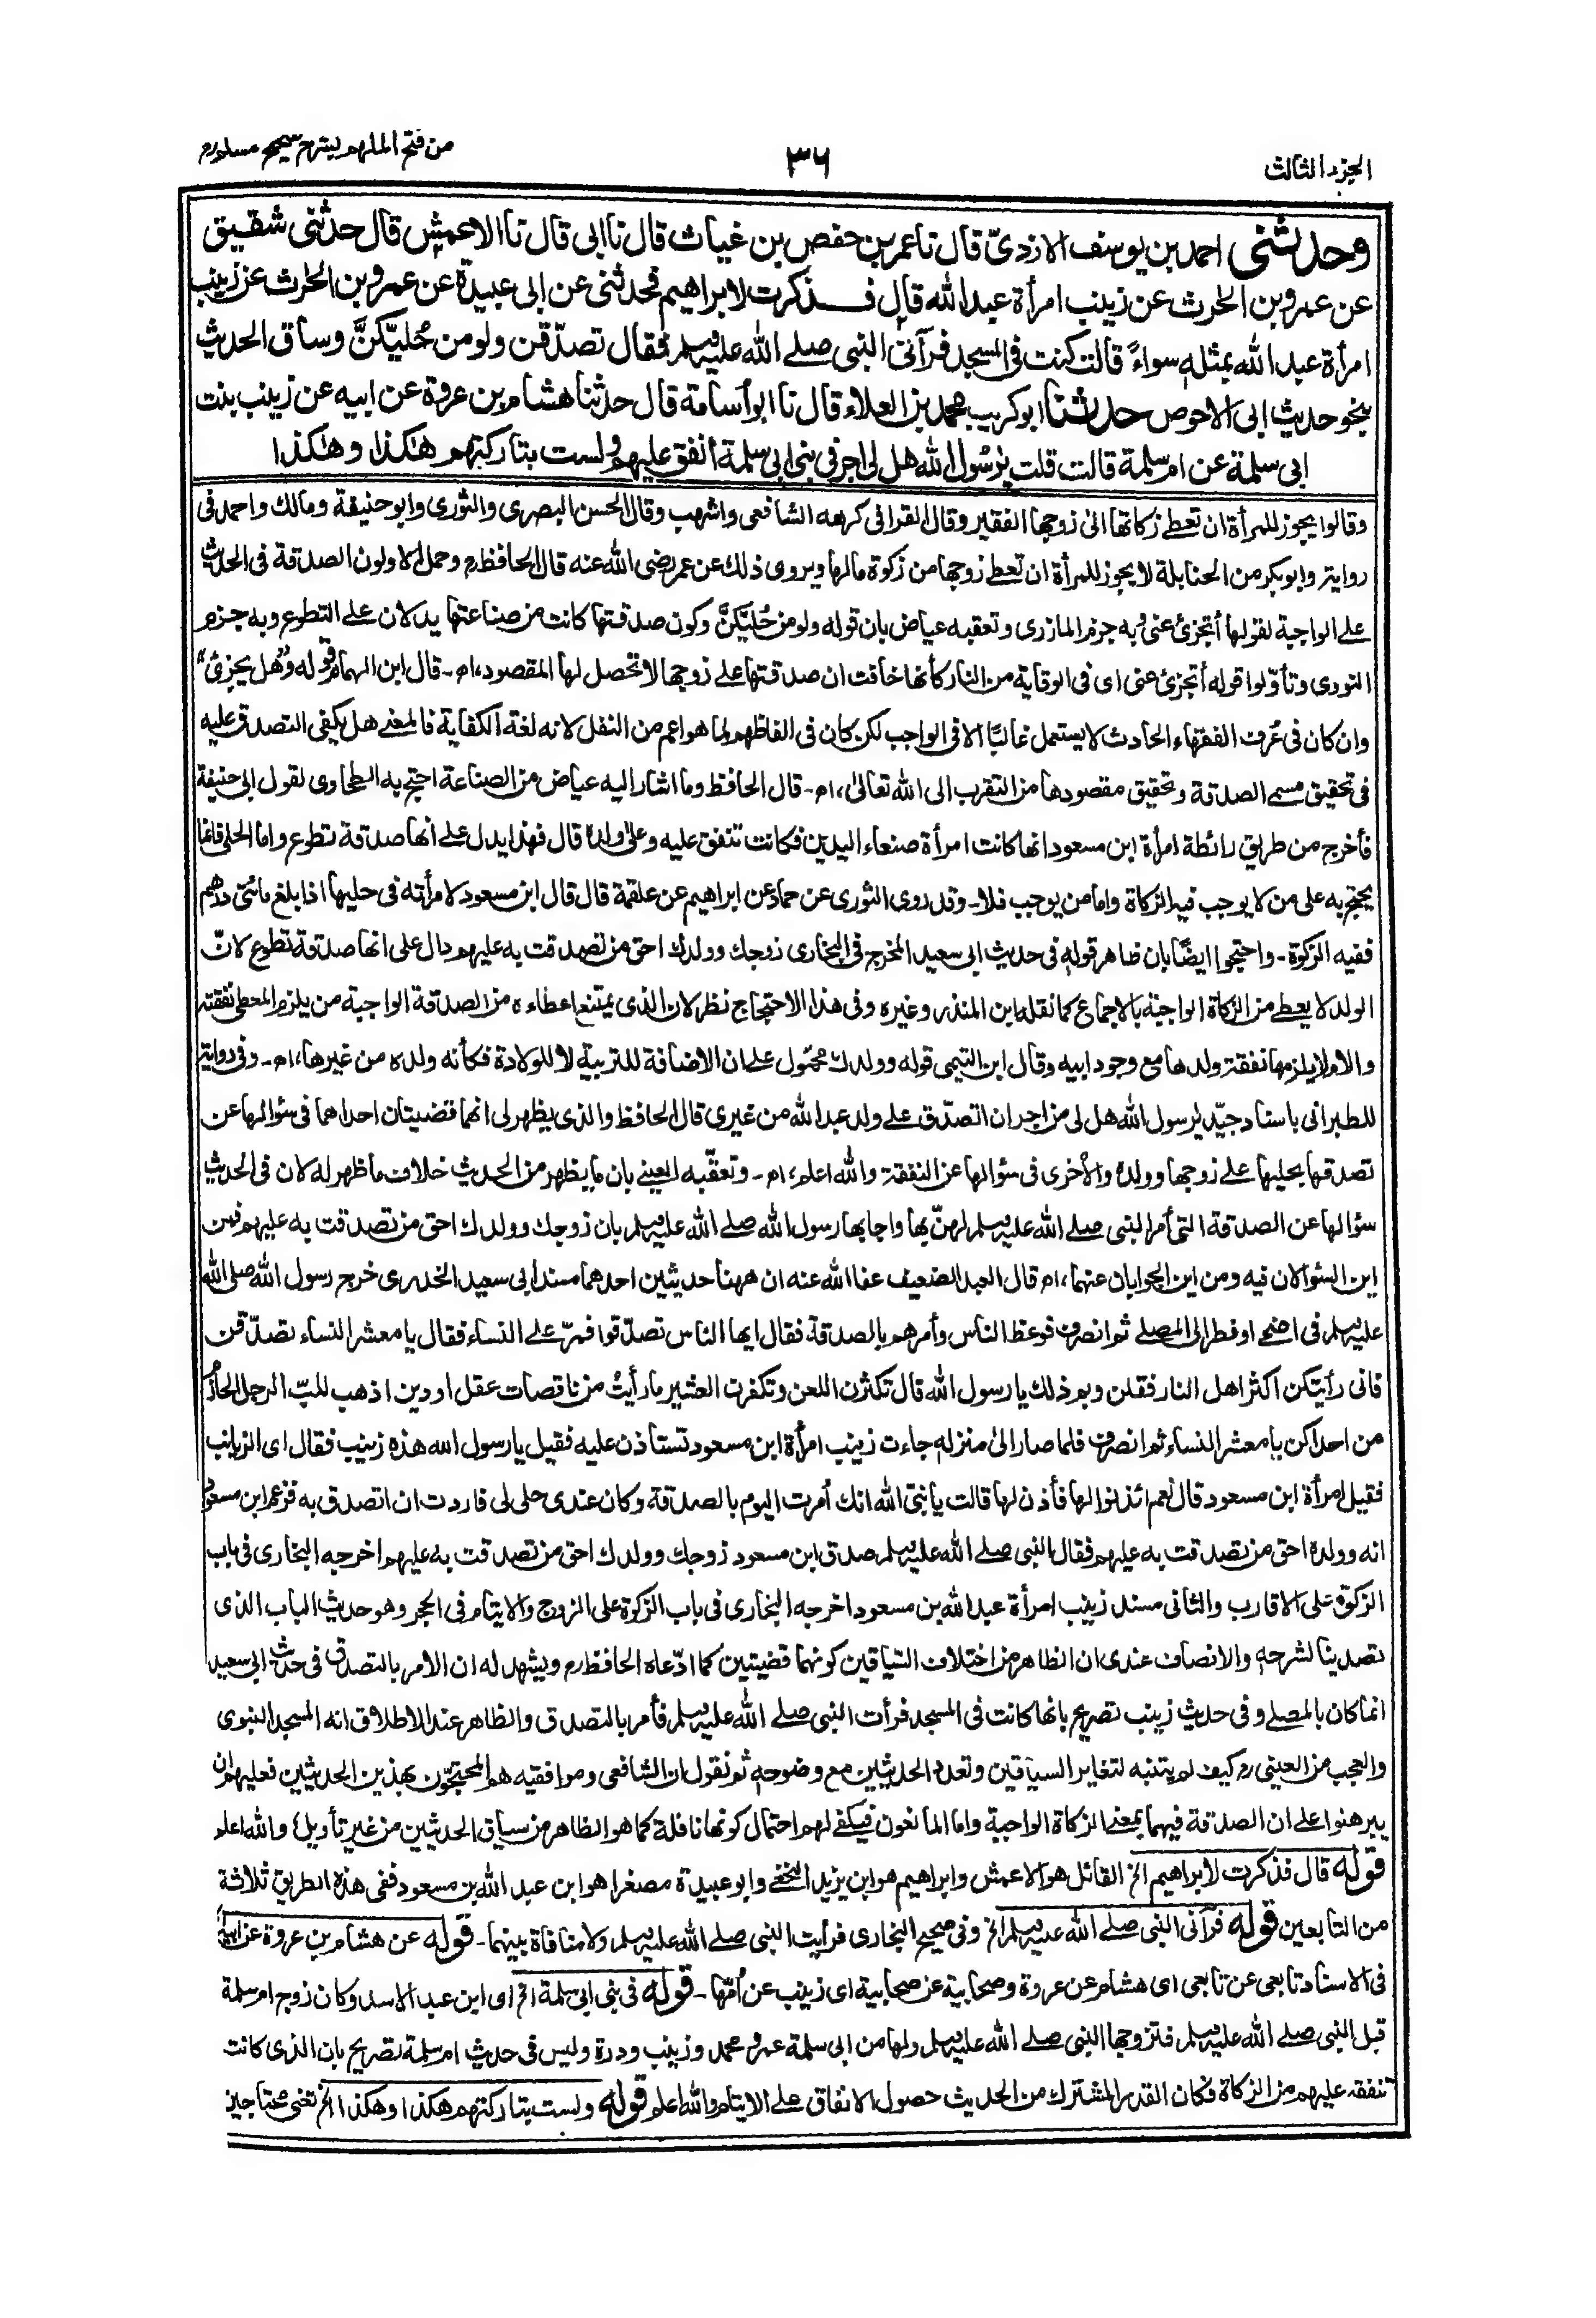 الجزء الثالث
٣٦
من فتح الملهم بشرح صحيح مسلم
وحدثنى احمد بن يوسف الازدىّ قال نا عمر بن حفص بن غياث قال نا ابى قال نا الاعمش قال حدثنى شقيق
عن عمرو بن الحرث عن زينب امرأة عبد الله قال فذكرت لابراهيم فحدثنى عن ابى عبيدة عن عمرو بن الحرث عن زينب
امرأة عبد الله بمثله سواءً قالت كنت فى المسجد فرآنى النبى صلے الله عليه وسلم فقال تصدّقن ولو من حُليّكنَّ وساق الحديث
بنحو حديث ابى الاحوص حدثنا ابو كريب محمد بن العلاء قال نا ابو أسامة قال حدثنا هشام بن عروة عن ابيه عن زينب بنت
ابى سلمة عن ام سلمة قالت قلت يٰرسُول الله هل لى اجر فى بنى ابى سلمة أنفق عليهم ولست بتاركتهم هٰكذا وهٰكذا
وقالوا يجوز للمرأة ان تعطے زكاتها الىٰ زوجها الفقير وقال القرافى كرهه الشافعى واشهب وقال الحسن البصرى والثورى وابو حنيفة ومالك واحمد فى
رواية وابو بكر من الحنابلة لا يجوز للمرأة ان تعطے زوجها من زكوة مالها ويروى ذلك عن عمر رضى الله عنه قال الحافظ رم وحمل الاولون الصدقة فى الحديث
علے الواجبة لقولها أتجزئ عنى وبه جزم المازرى وتعقبه عياض بان قوله ولو من حُليّكنَّ وكون صدقتها كانت من صناعتها يدلان علے التطوع وبه جزم
النووى وتأوّلوا قوله أتجزئ عنى اى فى الوقاية من النار كأنها خافت ان صدقتها علے زوجها لا تحصل لها المقصود، اھ - قال ابن الهمام قوله ”وهل يجزئ“
وان كان فى عُرف الفقهاء الحادث لا يستعمل غالبًا الا فى الواجب لكن كان فى الفاظهم لما هو اعم من النفل لانه لغة الكفاية فالمعنے هل يكفى التصدق عليه
فى تحقيق مسمى الصدقة وتحقيق مقصودها من التقرب الى الله تعالىٰ، اھ - قال الحافظ وما اشار اليه عياض من الصناعة احتج به الطحاوى لقول ابى حنيفة
فأخرج من طريق رائطة امرأة ابن مسعود انها كانت امرأة صنعاء اليدين فكانت تنفق عليه وعلى ولده قال فهذا يدل علے انها صدقة تطوع واما الحلى فانما
يحتج به على من لا يوجب فيه الزكاة واما من يوجب فلا - وقد روى الثورى عن حماد عن ابراهيم عن علقمة قال قال ابن مسعود لامرأته فى حليها اذا بلغ مائتى درهم
ففيه الزكوة - واحتجوا ايضًا بان ظاهر قوله فى حديث ابى سعيد المخرج فى البخارى زوجك وولدك احق من تصدقت به عليهم دال على انها صدقة تطوع لانّ
الولد لا يعطے من الزكاة الواجبة بالاجماع كما نقله ابن المنذر وغيره وفى هذا الاحتجاج نظر لان الذى يمتنع اعطاءه من الصدقة الواجبة من يلزم المعطى نفقته
والام لا يلزمها نفقة ولدها مع وجود ابيه وقال ابن التيمى قوله وولدك محمول علے ان الاضافة للتربية لا للولادة فكأنه ولده من غيرها، اھ - وفى رواية
للطبرانى باسناد جيّد يٰرسول الله هل لى من اجر ان اتصدّق علے ولد عبد الله من غيرى قال الحافظ والذى يظهر لى انهما قضيتان احداهما فى سؤالها عن
تصدقها بحليها علے زوجها وولده والأخرى فى سؤالها عن النفقة والله اعلم، اھ - وتعقّبه العينے بان ما يظهر من الحديث خلاف ما ظهر له لان فى الحديث
سؤالها عن الصدقة التى أمر النبى صلے الله عليه وسلم لهنّ بها واجابها رسول الله صلے الله عليه وسلم بان زوجك وولدك احق من تصدقت به عليهم فمن
اين السؤالان فيه ومن اين الجوابان عنهما، اھ قال العبد الضعيف عفا الله عنه ان ههنا حديثين احدهما مسند ابى سعيد الخدرى خرج رسول الله صلى الله
عليه وسلم فى اضحے او فطر الى المصلے ثم انصرف فوعظ الناس وأمرهم بالصدقة فقال ايها الناس تصدّقوا فمرّ علے النساء فقال يا معشر النساء تصدّقن
فانى رأيتكن اكثر اهل النار فقلن وبم ذلك يا رسول الله قال تكثرن اللعن وتكفرن العشير ما رأيتُ من ناقصات عقل او دين اذهب للبّ الرجل الحازم
من احداكن يا معشر النساء ثم انصرف فلما صار الىٰ منزله جاءت زينب امرأة ابن مسعود تستاذن عليه فقيل يا رسول الله هذه زينب فقال اى الزيانب
فقيل امرأة ابن مسعود قال نعم ائذنوا لها فأذن لها قالت يا نبىّ الله انك أمرت اليوم بالصدقة وكان عندى حلى لى فاردت ان اتصدق به فزعم ابن مسعود
انه وولده احق من تصدقت به عليهم فقال النبى صلے الله عليه وسلم صدق ابن مسعود زوجك وولدك احق من تصدقت به عليهم اخرجه البخارى فى باب
الزكوة على الاقارب والثانى مسند زينب امرأة عبد الله بن مسعود اخرجه البخارى فى باب الزكوة على الزوج والايتام فى الحجر وهو حديث الباب الذى
تصدينا لشرحه والانصاف عندى ان الظاهر من اختلاف السّياقين كونهما قضيتين كما ادّعاه الحافظ رم ويشهد له ان الامر بالتصدق فى حديث ابى سعيد
انما كان بالمصلے وفى حديث زينب تصريح بانها كانت فى المسجد فرأت النبى صلے الله عليه وسلم فأمر بالتصدق والظاهر عند الاطلاق انه المسجد النبوى
والعجب من العينى رم كيف لم يتنبه لتغاير السياقين وتعدد الحديثين مع وضوحه ثم نقول ان الشافعى وموافقيه هم المحتجّون بهذين الحديثين فعليهم ان
يبرهنوا على ان الصدقة فيهما بمعنے الزكاة الواجبة واما المانعون فيكفے لهم احتمال كونها نافلة كما هو الظاهر من سياق الحديثين من غير تأويل، والله اعلم
قوله قال فذكرت لابراهيم الخ القائل هو الاعمش وابراهيم هو ابن يزيد النخعے وابو عبيدة مصغرا هو ابن عبد الله بن مسعود ففى هذه الطريق ثلاثة
من التابعين قوله فرآنى النبى صلے الله عليه وسلم الخ وفى صحيح البخارى فرايت النبى صلے الله عليه وسلم ولا منافاة بينهما - قوله عن هشام بن عروة عن ابيه الخ
فى الاسناد تابعى عن تابعى اى هشام عن عروة وصحابية عن صحابية اى زينب عن أمّها - قوله فى بنى ابى سلمة الخ اى ابن عبد الاسد وكان زوج ام سلمة
قبل النبى صلے الله عليه وسلم فتزوجها النبى صلے الله عليه وسلم ولها من ابى سلمة عمر و محمد وزينب ودرة وليس فى حديث ام سلمة تصريح بان الذى كانت
تنفقه عليهم من الزكاة فكان القدر المشترك من الحديث حصول الانفاق علے الايتام والله اعلم قوله ولست بتاركتهم هكذا وهكذا الخ تعنى محتاجين